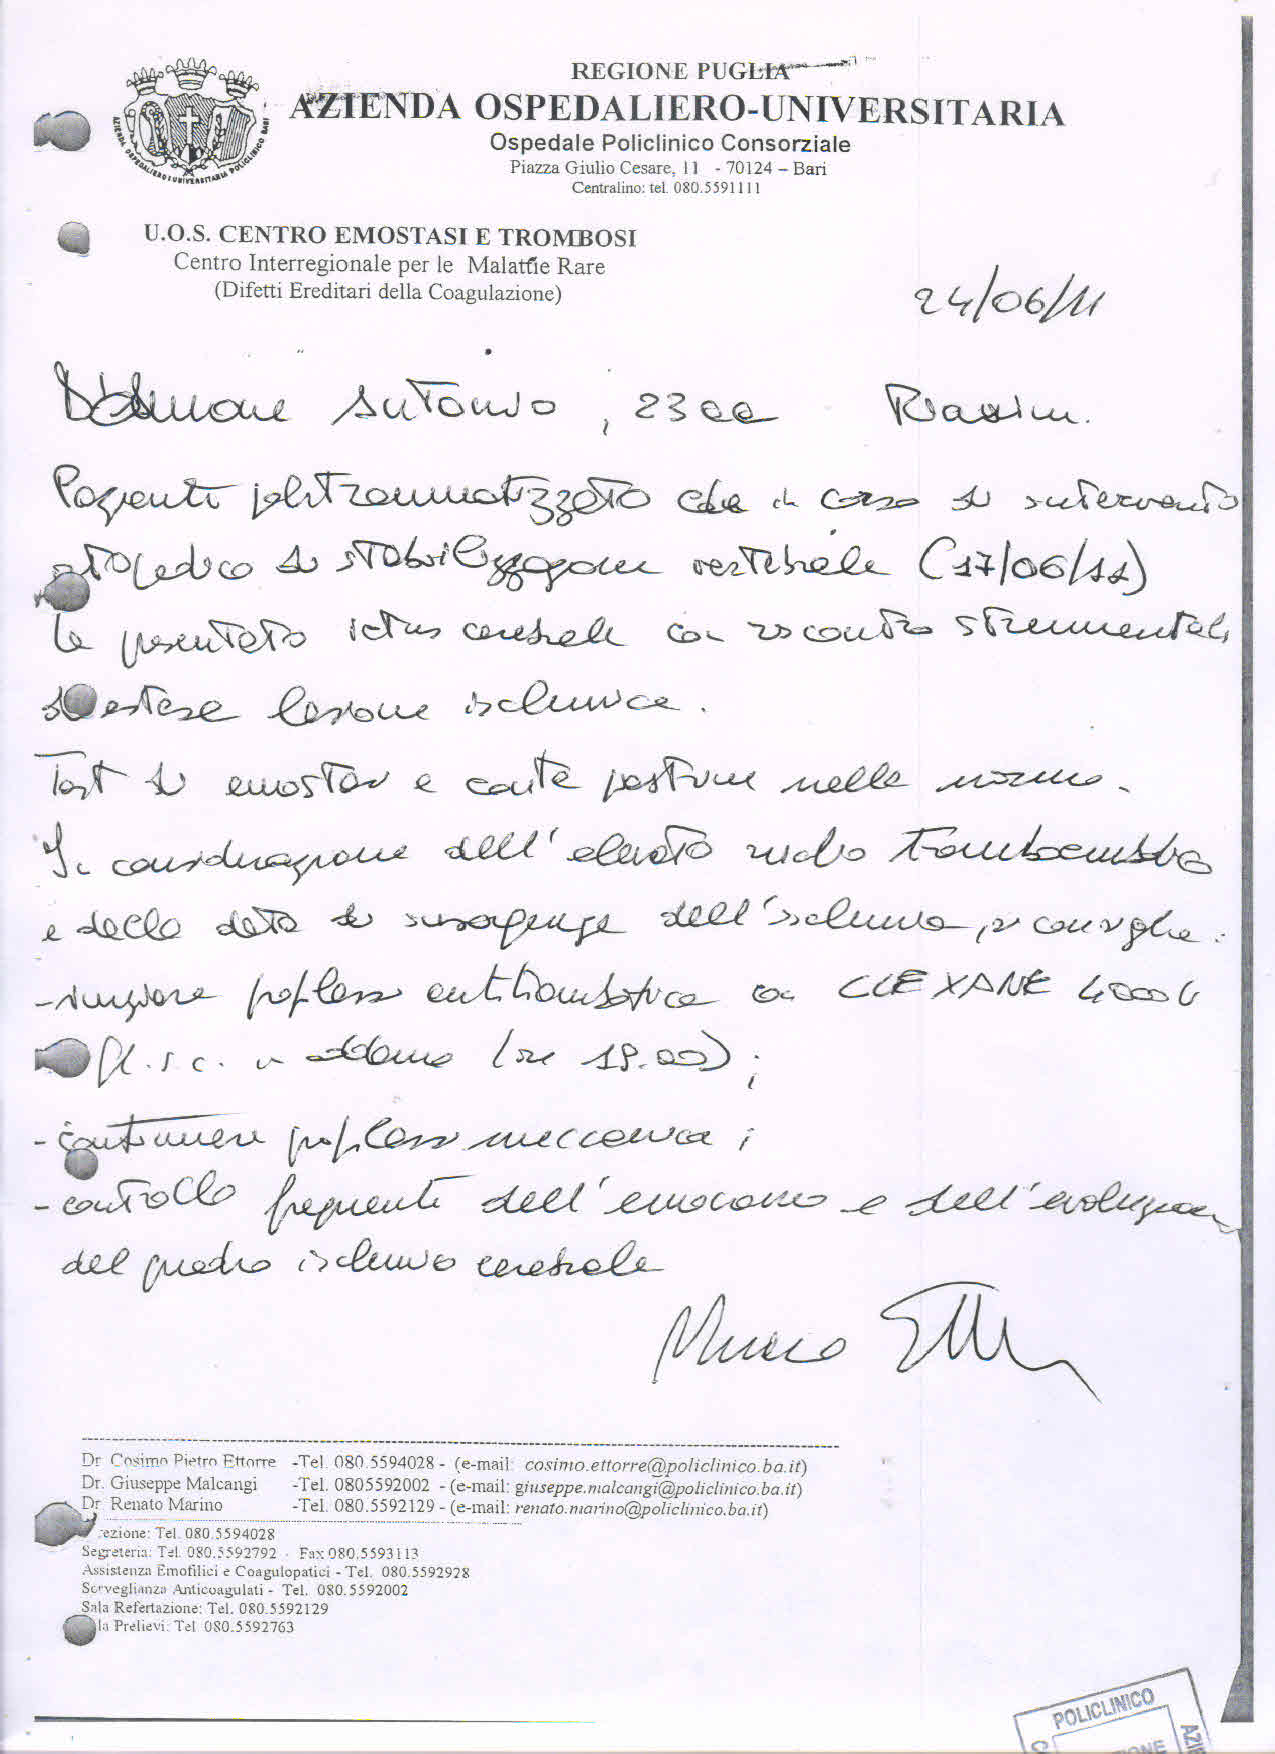 REGIONE PUGLIA
AZIENDA OSPEDALIERO-UNIVERSITARIA
Ospedale Policlinico Consorziale
Piazza Giulio Cesare, 11 - 70124 – Bari
Centralino: tel. 080.5591111
AZIENDA OSPEDALIERO UNIVERSITARIA POLICLINICO BARI
U.O.S. CENTRO EMOSTASI E TROMBOSI
Centro Interregionale per le Malattie Rare
(Difetti Ereditari della Coagulazione)
24/06/11
Antonio, 23 aa Rianim.
Paziente politraumatizzato che in corso di intervento
ortopedico di stabilizzazione vertebrale (17/06/11)
ha presentato ictus cerebrale con riscontro strumentale
di estesa lesione ischemica.
Test di emostasi e conta piastrine nella norma.
In considerazione dell'elevato rischio tromboembolico
e della data di insorgenza dell'ischemia, si consiglia:
- iniziare profilassi antitrombotica con CLEXANE 4000 U
fl. s.c. in addome (ore 18.00);
- continuare profilassi meccanica;
- controllo frequente dell'emocromo e dell'evoluzione
del quadro ischemico cerebrale
Dr Cosimo Pietro Ettorre -Tel. 080.5594028 - (e-mail: cosimo.ettorre@policlinico.ba.it)
Dr. Giuseppe Malcangi -Tel. 0805592002 - (e-mail: giuseppe.malcangi@policlinico.ba.it)
Dr Renato Marino -Tel. 080.5592129 - (e-mail: renato.marino@policlinico.ba.it)
ezione: Tel. 080.5594028
Segreteria: Tel. 080.5592792 - Fax 080.5593113
Assistenza Emofilici e Coagulopatici - Tel. 080.5592928
Sorveglianza Anticoagulati - Tel. 080.5592002
Sala Refertazione: Tel. 080.5592129
la Prelievi: Tel 080.5592763
POLICLINICO